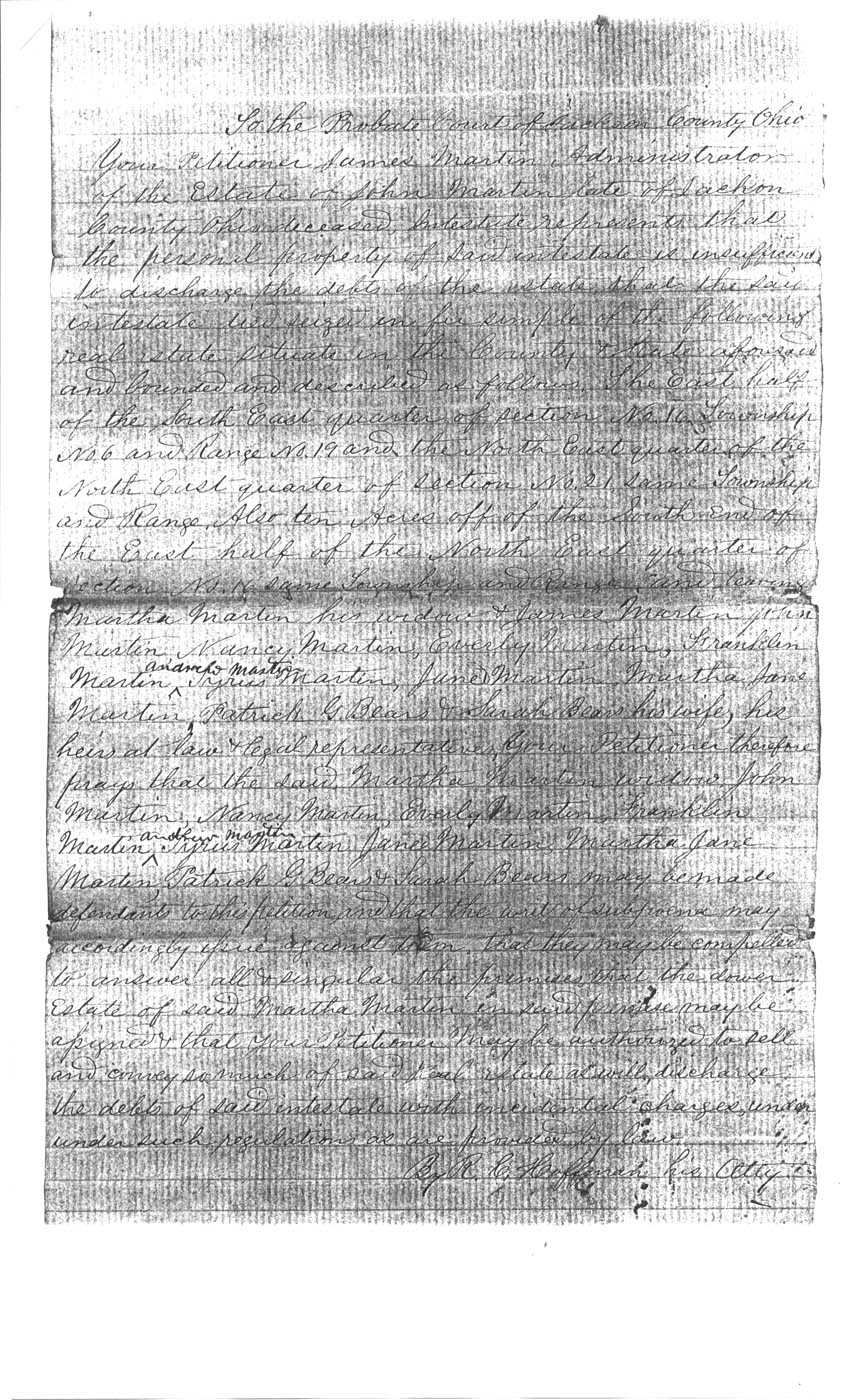 To the Probate Court of Jackson County Ohio
Your Petitioner James Martin Administrator
of the Estate of John Martin late of Jackon
County Ohio deceased, Intestate, represents that
the personal property of said intestate is insufficient
to discharge the debts of the estate that the said
intestate died seized in fee simple of the following
real estate situate in the County & State aforesaid
and bounded and described as follows. The East half
of the South East quarter of section No. 16 Township
No 6 and Range No. 19 and the North East quarter of the
North East quarter of section No. 21 same Township
and Range, Also ten Acres off of the South End of
the East half of the North East quarter of
section No. 16 same Township and Range and leaving
Martha Martin his widow & James Martin John
Martin, Nancy Martin, Everly Martin, Franklin
andrew Martin
Martin, Syrus Martin, Jane Martin Martha Jane
Martin, Patrick G Bears & Sarah Bears his wife, his
heirs at law & legal representatives, Your Petitioner therefore
prays that the said Martha Martin widow John
Martin, Nancy Martin, Everly Martin, Franklin
andrew Martin
Martin, Syrus Martin Jane Martin, Martha Jane
Martin, Patrick G Bears & Sarah Bears may be made
defendants to this petition and that the writ of subpoena may
accordingly issue against them that they may be compelled
to answer all & singular the premises, that the dower
Estate of said Martha Martin in said premise may be
assigned & that your Petitioner may be authorized to sell
and convey so much of said real estate as will discharge
the debts of said intestate with incidental charges, under
under such regulations as are provided by law
By R. C. his Atty